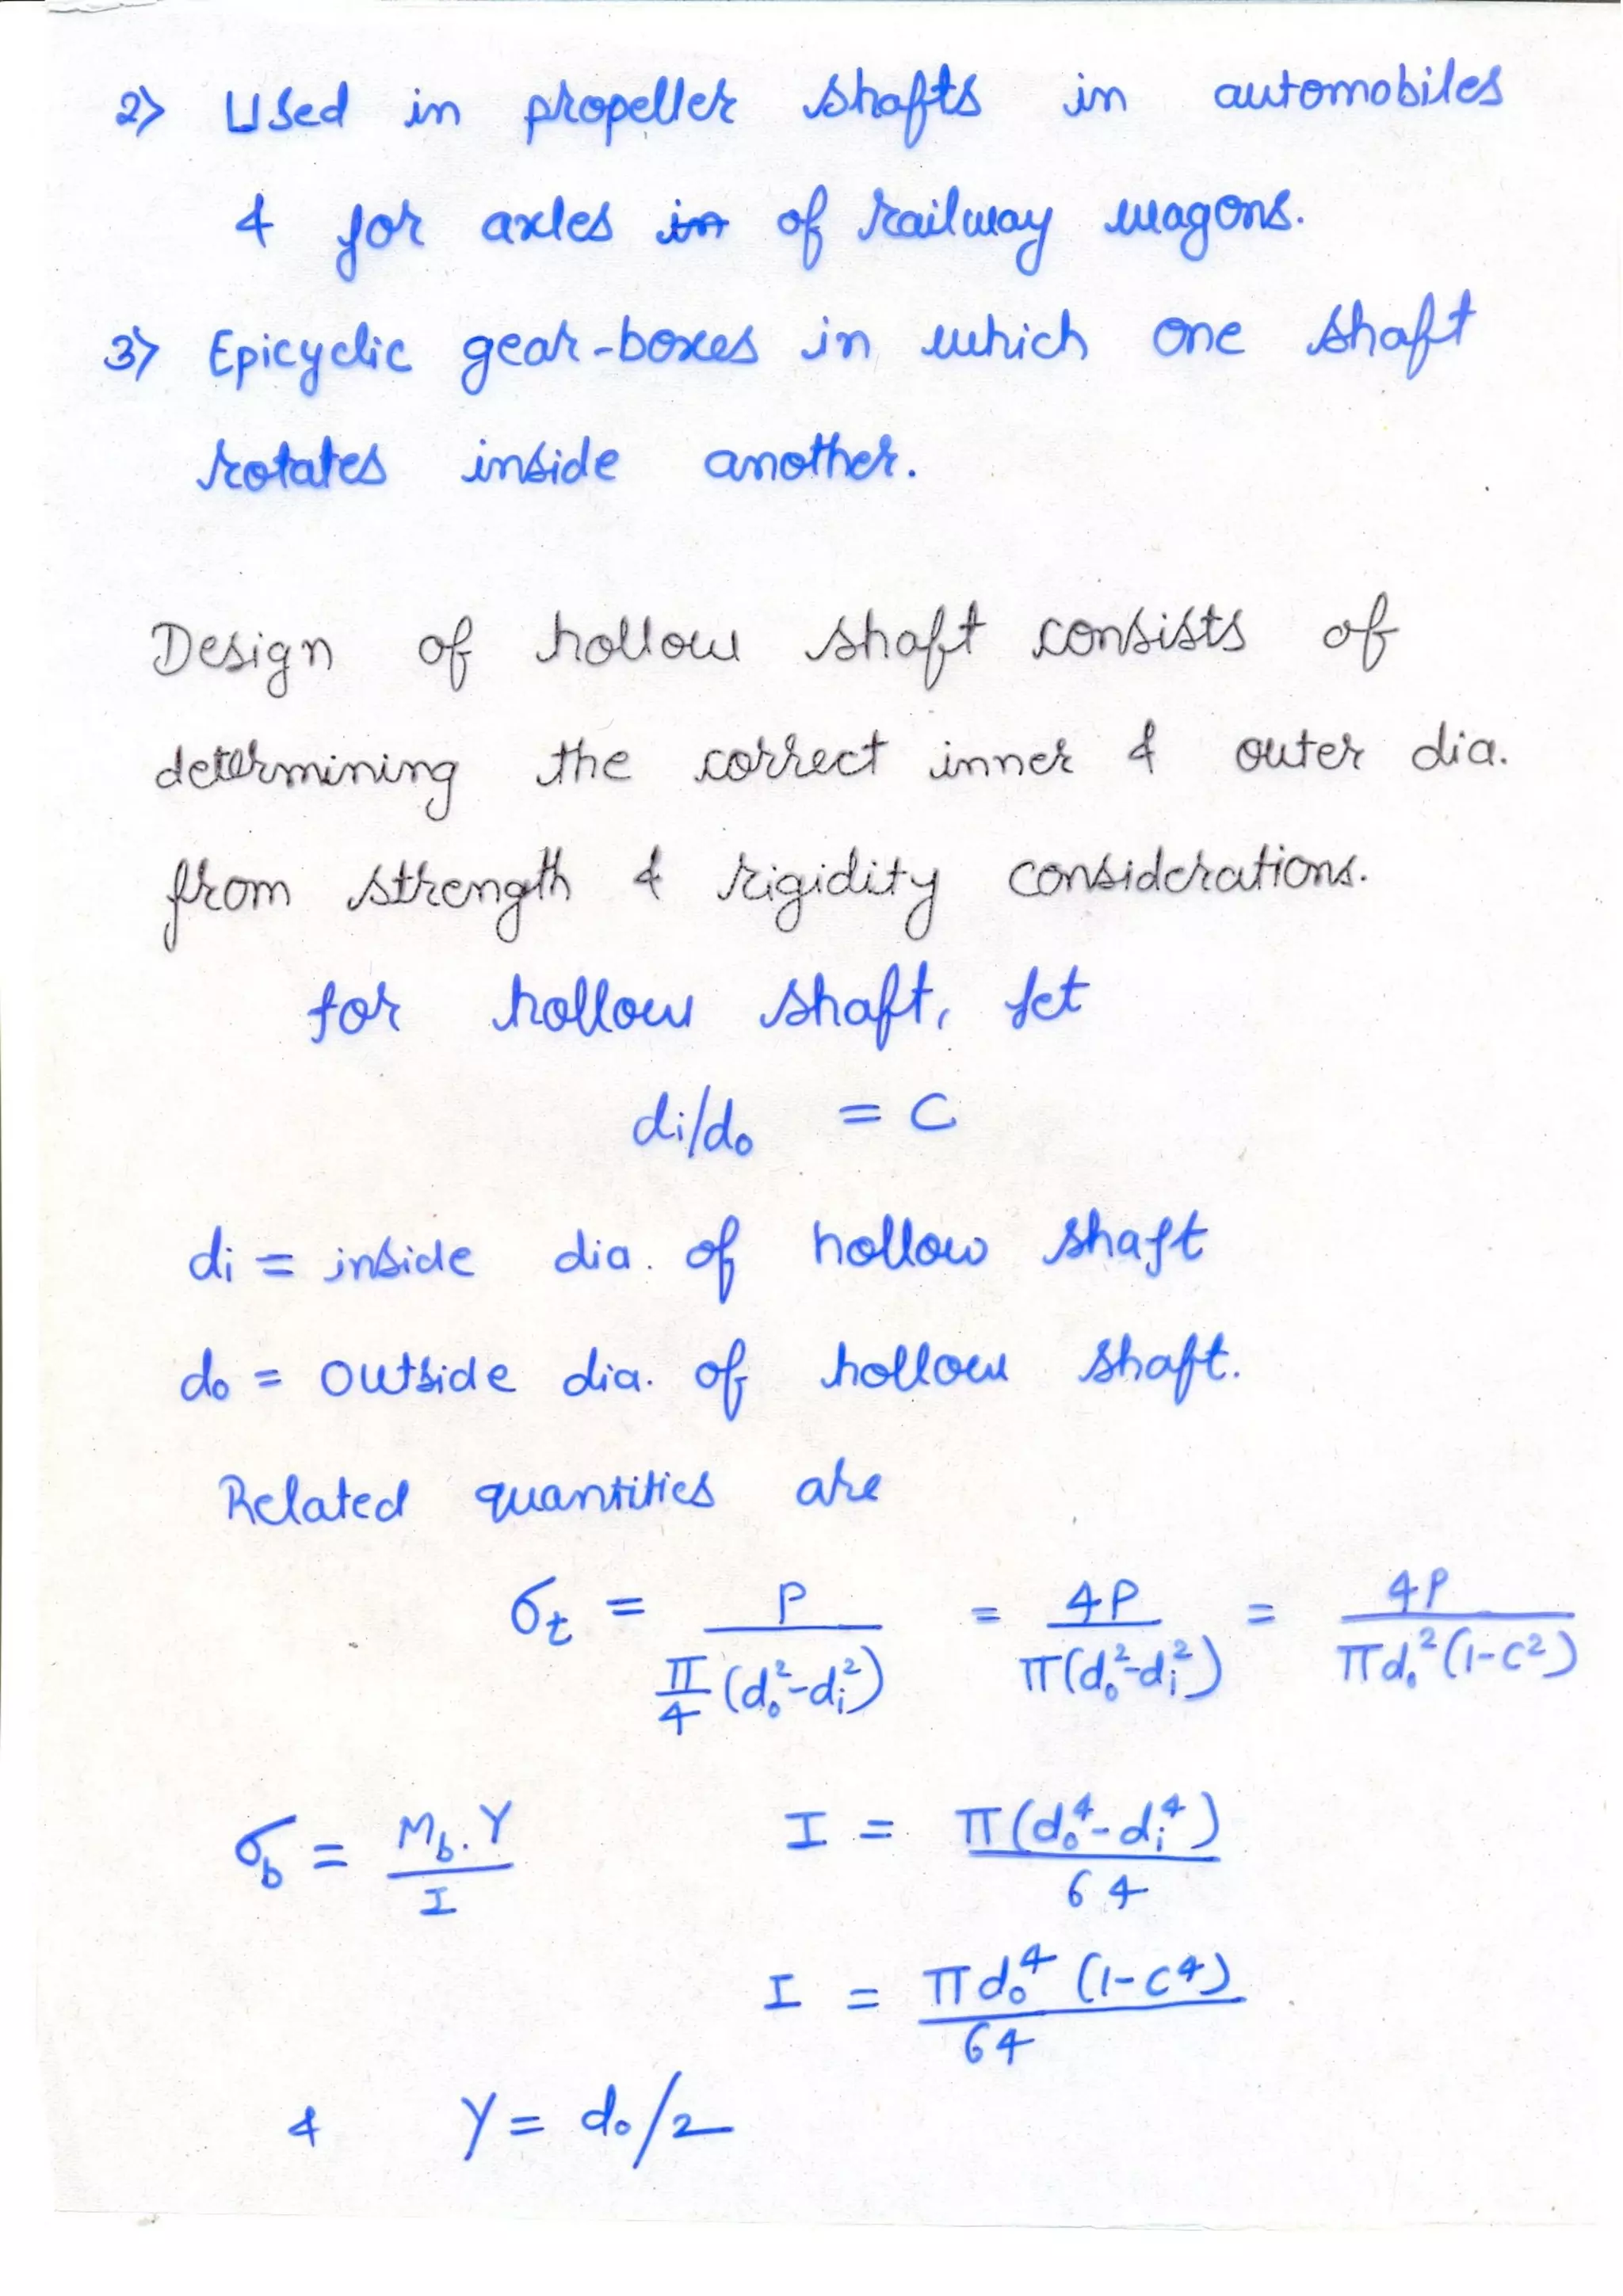 2) Used in propeller shafts in automobiles
& for axles in of railway wagons.
3) Epicyclic gear-boxes in which one shaft
rotates inside another.
Design of hollow shaft consists of
determining the correct inner & outer dia.
from strength & rigidity considerations.
for hollow shaft, let
di/do = C
di = inside dia. of hollow shaft
do = outside dia. of hollow shaft.
Related quantities are
σt = P / (π/4 (do²-di²)) = 4P / (π(do²-di²)) = 4P / (πdo²(1-C²))
σb = Mb.Y / I    I = π(do⁴-di⁴) / 64
I = πdo⁴ (1-C⁴) / 64
& Y = do/2